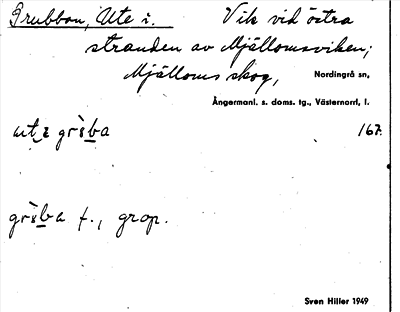 Grubban, Ute i. Vik vid östra
stranden av Mjällomsviken;
Mjälloms skog, Nordingrå sn,
Ångermanl. s. doms. tg., Västernorrl, l.
ut i grs̀ba 167.
grs̀ba f., grop.
Sven Hiller 1949